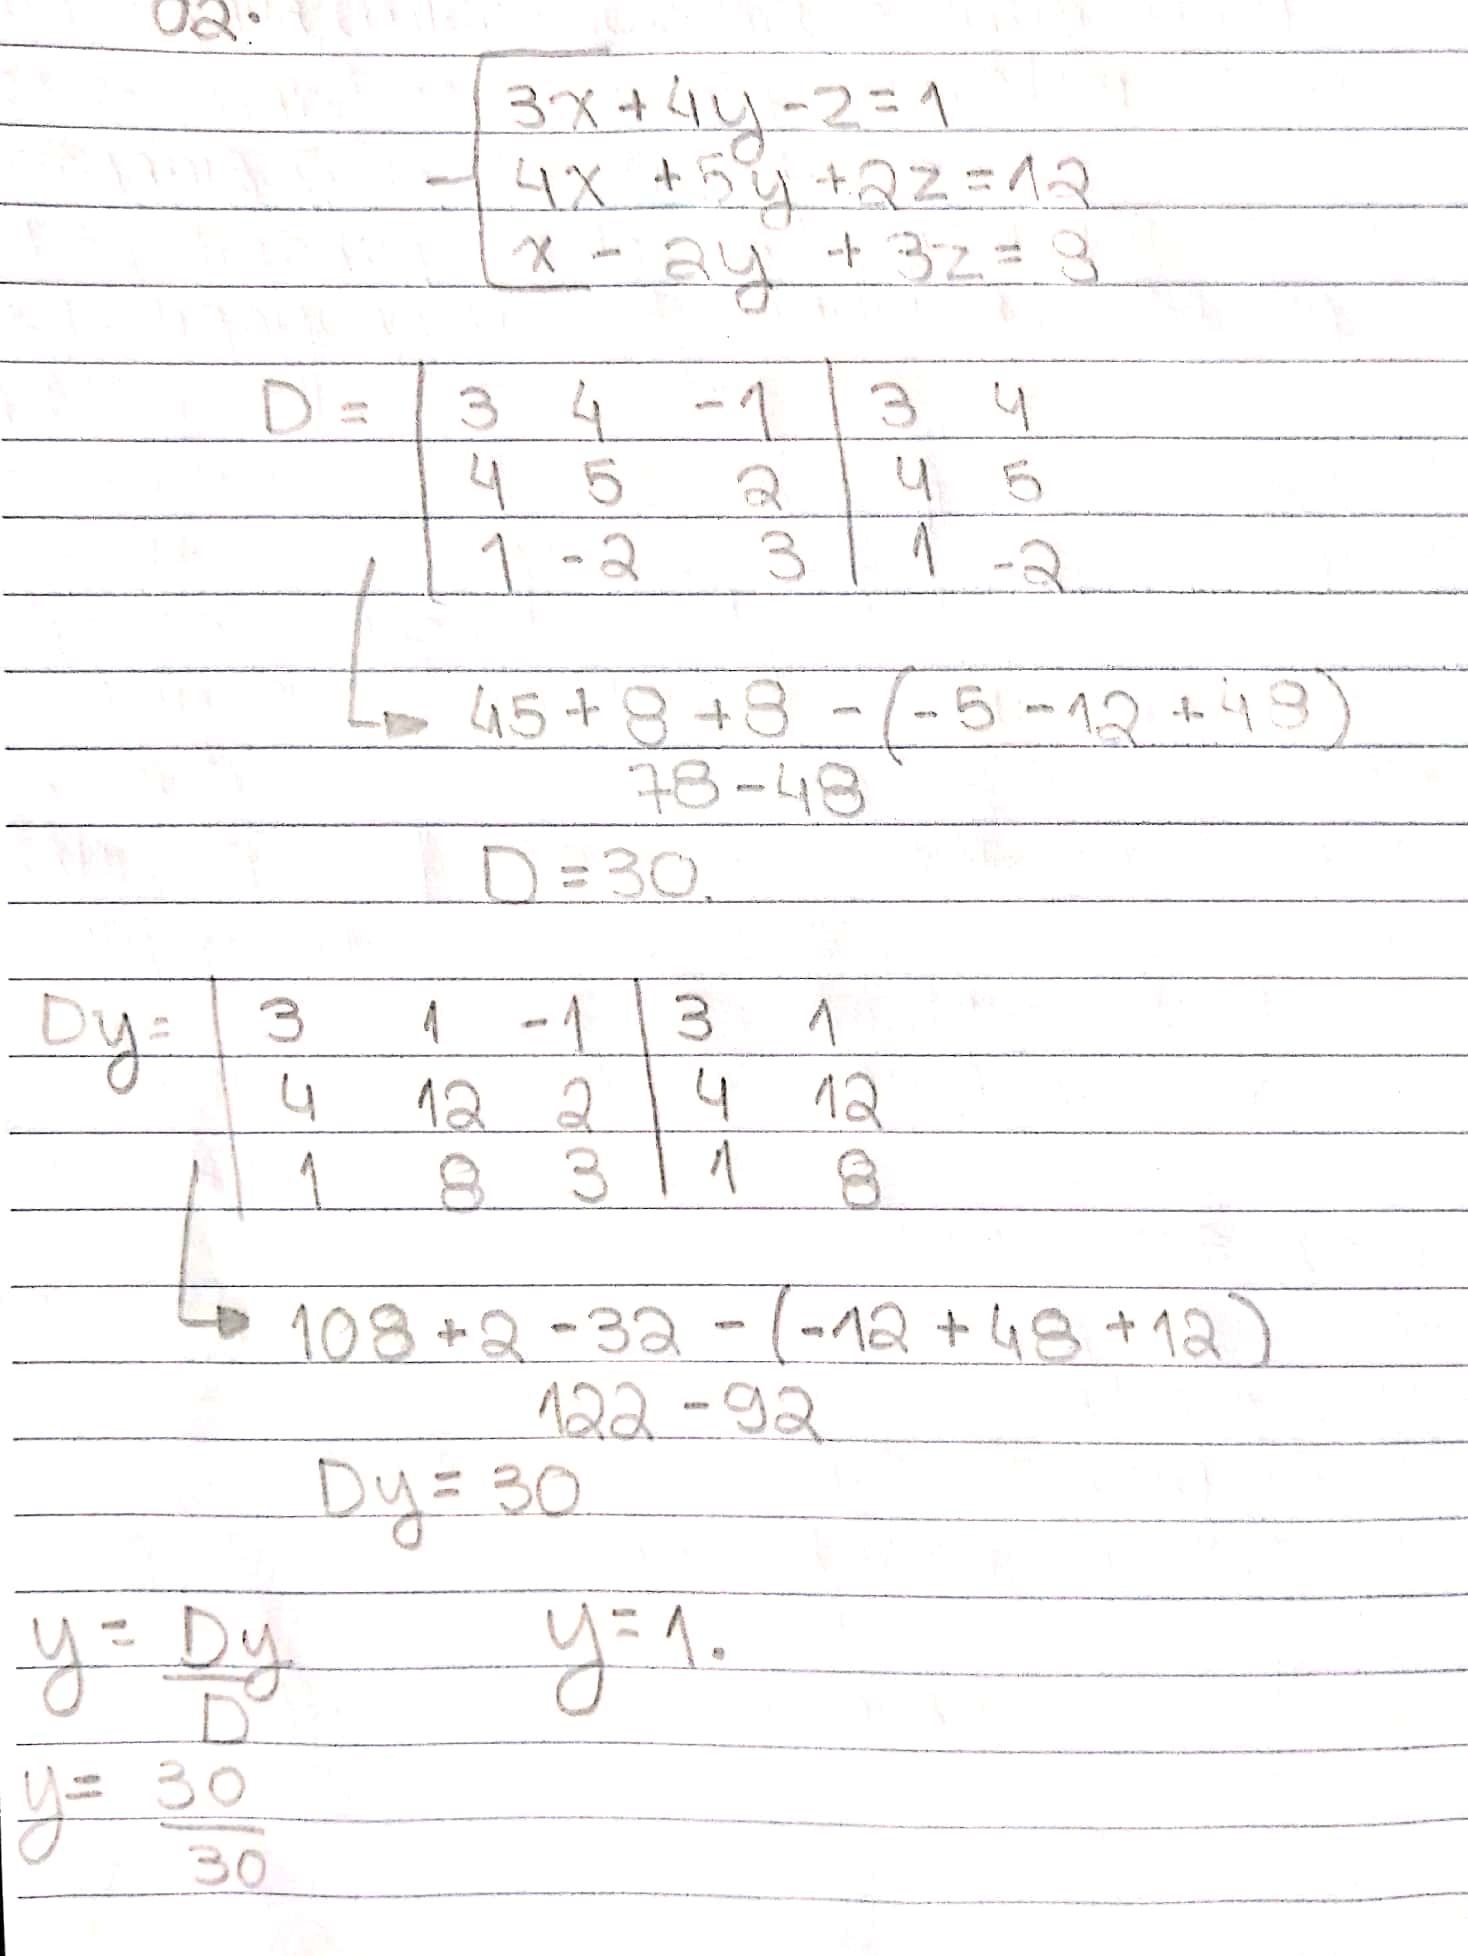 02.
3x+4y-z=1
4x+5y+2z=12
x-2y+3z=8
D= | 3 4 -1 | 3 4
4 5 2 | 4 5
1 -2 3 | 1 -2
45+8+8-(-5-12+48)
78-48
D=30.
Dy= | 3 1 -1 | 3 1
4 12 2 | 4 12
1 8 3 | 1 8
108+2-32-(-12+48+12)
122-92
Dy=30
y=Dy/D y=1.
y=30/30